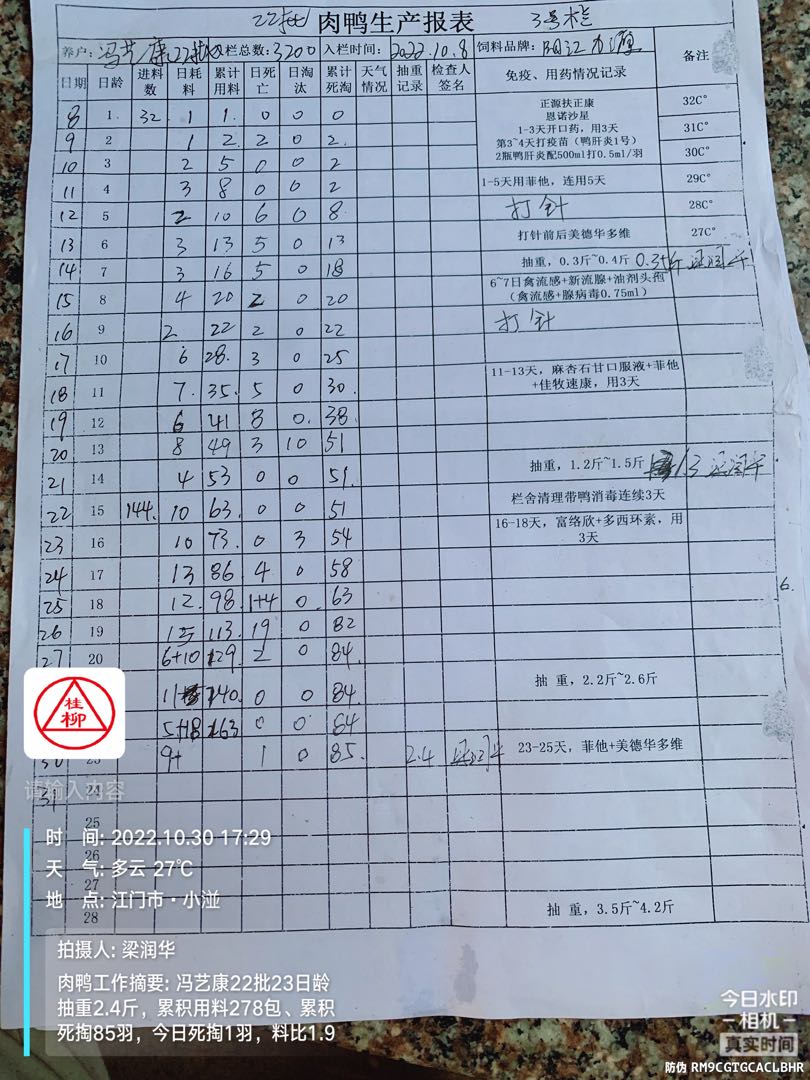 22批 肉鸭生产报表 3号栏
养户: 冯艺康22批 入栏总数: 3200 入栏时间: 2022.10.8 饲料品牌: 备注
日期 日龄 进料数 日耗料 累计用料 日死亡 日淘汰 累计死淘 天气情况 抽重记录 检查人签名 免疫、用药情况记录
8 1 32 1 1 0 0 0 正源扶正康 32C°
恩诺沙星
1-3天开口药，用3天
9 2 1 2 2 0 2 第3~4天打疫苗（鸭肝炎1号） 31C°
10 3 2 5 0 0 2 2瓶鸭肝炎配500ml打0.5ml/羽 30C°
11 4 3 8 0 0 2 1-5天用菲他，连用5天 29C°
12 5 2 10 6 0 8 打针 28C°
13 6 3 13 5 0 13 打针前后美德华多维 27C°
14 7 3 16 5 0 18 抽重，0.3斤~0.4斤
15 8 4 20 2 0 20 6~7日禽流感+新流腺+油剂头孢
（禽流感+腺病毒0.75ml）
16 9 2 22 2 0 22 打针
17 10 6 28 3 0 25
18 11 7 35 5 0 30 11-13天，麻杏石甘口服液+菲他
+佳牧速康，用3天
19 12 6 41 8 0 38
20 13 8 49 3 10 51
21 14 4 53 0 0 51 抽重，1.2斤~1.5斤
22 15 144 10 63 0 0 51 栏舍清理带鸭消毒连续3天
23 16 10 73 0 3 54 16-18天，富络欣+多西环素，用
3天
24 17 13 86 4 0 58
25 18 12 98 1+4 0 63
26 19 15 113 19 0 82
27 20 6+10 129 2 0 84
11+ 140 0 0 84 抽 重，2.2斤~2.6斤
5+18 163 0 0 84
30 23 9+ 1 0 85 2.4 23-25天，菲他+美德华多维
31 24
25
26
27
28 抽 重，3.5斤~4.2斤
6.
桂柳
请输入内容
时 间: 2022.10.30 17:29
天 气: 多云 27℃
地 点: 江门市·小澁
拍摄人: 梁润华
肉鸭工作摘要: 冯艺康22批23日龄
抽重2.4斤，累积用料278包、累积
死掏85羽，今日死掏1羽，料比1.9
今日水印
-相机-
真实时间
防伪 RM9CGTGCACLBHR